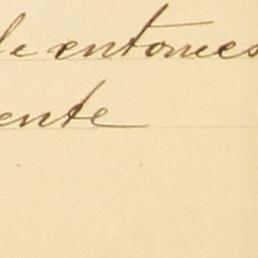 de entonces
ente